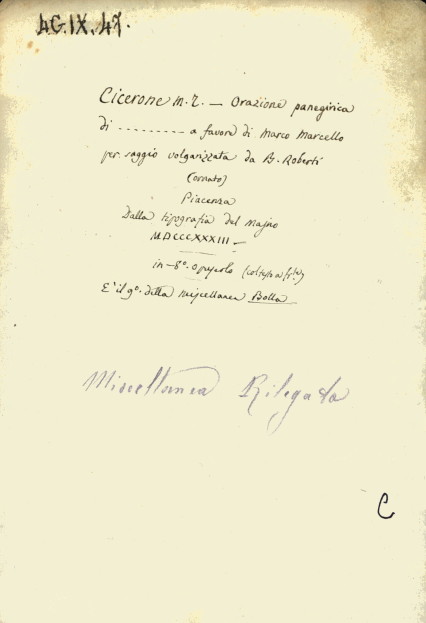 4G.IX.47.
Cicerone M. T. — Orazione panegirica
di ......... a favore di Marco Marcello
per saggio volgarizzata da B. Roberti
(ornato)
Piacenza
Dalla tipografia del Majno
MDCCCXXXIII —
in-8º. opuscolo
E' il 9º. della miscellanea Bolla
Miscellanea Rilegata
C